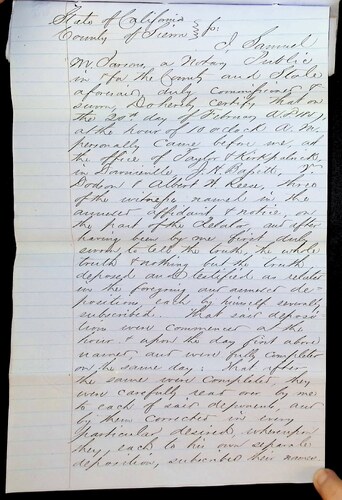 State of California
County of Sierra } ss.
I, Samuel
M. , a Notary Public
in & for the County and State
aforesaid, duly commissioned &
sworn, Do hereby certify, that on
the 20th day of February A.D.
at the hour of 10 o'clock A. M.
personally came before me, at
the office of Taylor & Kirkpatrick
in Downieville, J. K.
Dodson & Albert H. Reese, three
of the witnesses named in the
annexed affidavit & notice, on
the part of the Relator, and after
having been by me first duly
sworn to tell the truth, the whole
truth & nothing but the truth
deposed and testified as related
in the foregoing and annexed de-
positions, each by himself severally
subscribed. That said deposi-
tions were commenced at the
hour & upon the day first above
named, and were fully completed
on the same day: that after
the same were completed, they
were carefully read over by me
to each of said deponents, and
by them corrected in every
particular desired, whereupon
they, each to his own separate
deposition, subscribed their names